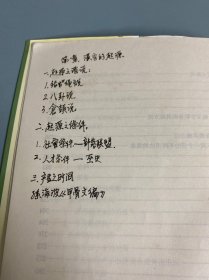 第一章、汉字的起源
一.起源之诸说:
1.结绳说
2.八卦说
3.仓颉说
二.起源之条件,
1.社会条件——部落联盟.
2.人才条件——巫史
三.产生之时间
《甲骨文编》